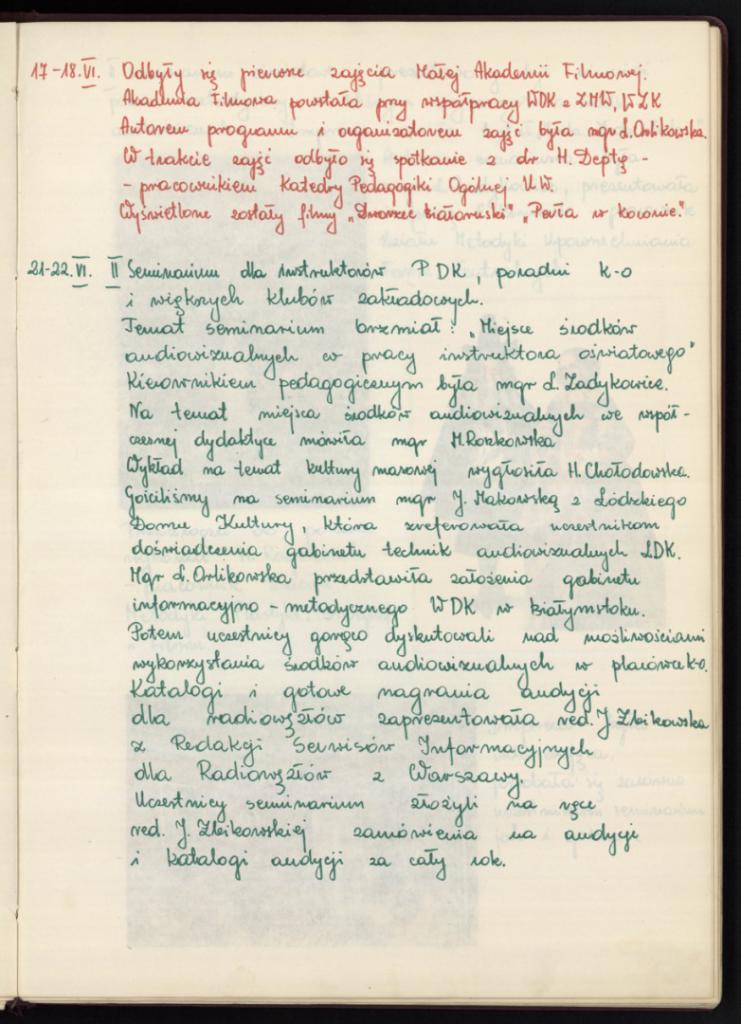 17-18.VI. Odbyły się pierwsze zajęcia Małej Akademii Filmowej.
Akademia Filmowa powstała przy współpracy WDK z ZMW, WZK
Autorem programu i organizatorem zajęć była mgr L. Orlikowska.
W trakcie zajęć odbyło się spotkanie z dr H. Deptą -
- pracownikiem Katedry Pedagogiki Ogólnej U.W.
Wyświetlone zostały filmy „Dworzec białoruski" „Perła w koronie."
21-22.VI. II Seminarium dla instruktorów PDK, poradni k-o
i większych klubów zakładowych.
Temat seminarium brzmiał: „Miejsce środków
audiowizualnych w pracy instruktora oświatowego"
Kierownikiem pedagogicznym była mgr L. Zadykowicz.
Na temat miejsca środków audiowizualnych we współ-
czesnej dydaktyce mówiła mgr M. Roszkowska
Wykład na temat kultury masowej wygłosiła H. Chołodowska.
Gościliśmy na seminarium mgr J. Makowską z Łódzkiego
Domu Kultury, która zreferowała uczestnikom
doświadczenia gabinetu technik audiowizualnych ŁDK.
Mgr L. Orlikowska przedstawiła założenia gabinetu
informacyjno - metodycznego WDK w Białymstoku.
Potem uczestnicy gorąco dyskutowali nad możliwościami
wykorzystania środków audiowizualnych w placówce k-o.
Katalogi i gotowe nagrania audycji
dla radiowęzłów zaprezentowała red. J Zbikowska
z Redakcji Serwisów Informacyjnych
dla Radiowęzłów z Warszawy.
Uczestnicy seminarium złożyli na ręce
red. J. Zbikowskiej zamówienia na audycje
i katalogi audycji za cały rok.